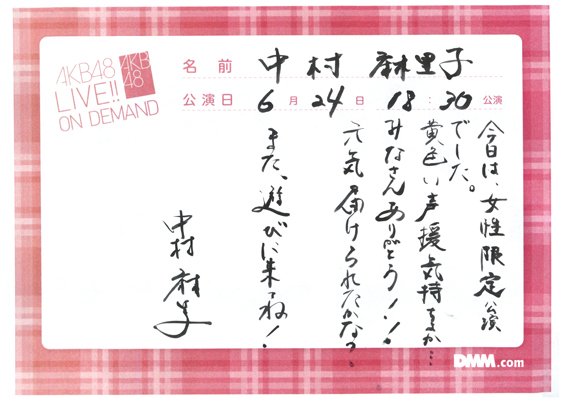 AKB48
LIVE!!
ON DEMAND
AKB
48
名前 中村 麻里子
公演日 6月24日 18:30公演
今日は、女性限定公演
でした。
黄色い声援気持ちか…
みなさんありがとう！！
元気届けられたかな？
また、遊びに来てね！
中村麻里子
DMM.com